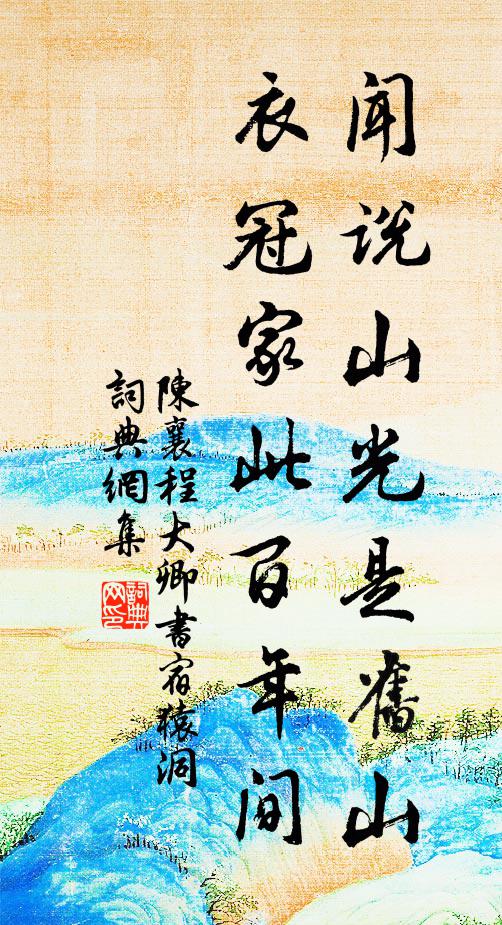 聞説山光是舊山
衣冠家此百年間
陳襄程大卿書宿猿洞
詞典網集
詞典網印